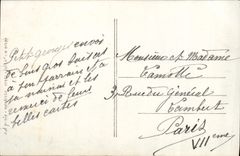 Petit georges envoi
de bons gros baisers
à ton parrain et à
ta nounou et les
remercie de leurs
belles cartes
Monsieur et Madame
3, Rue du Général
Lambert
Paris
VIIeme